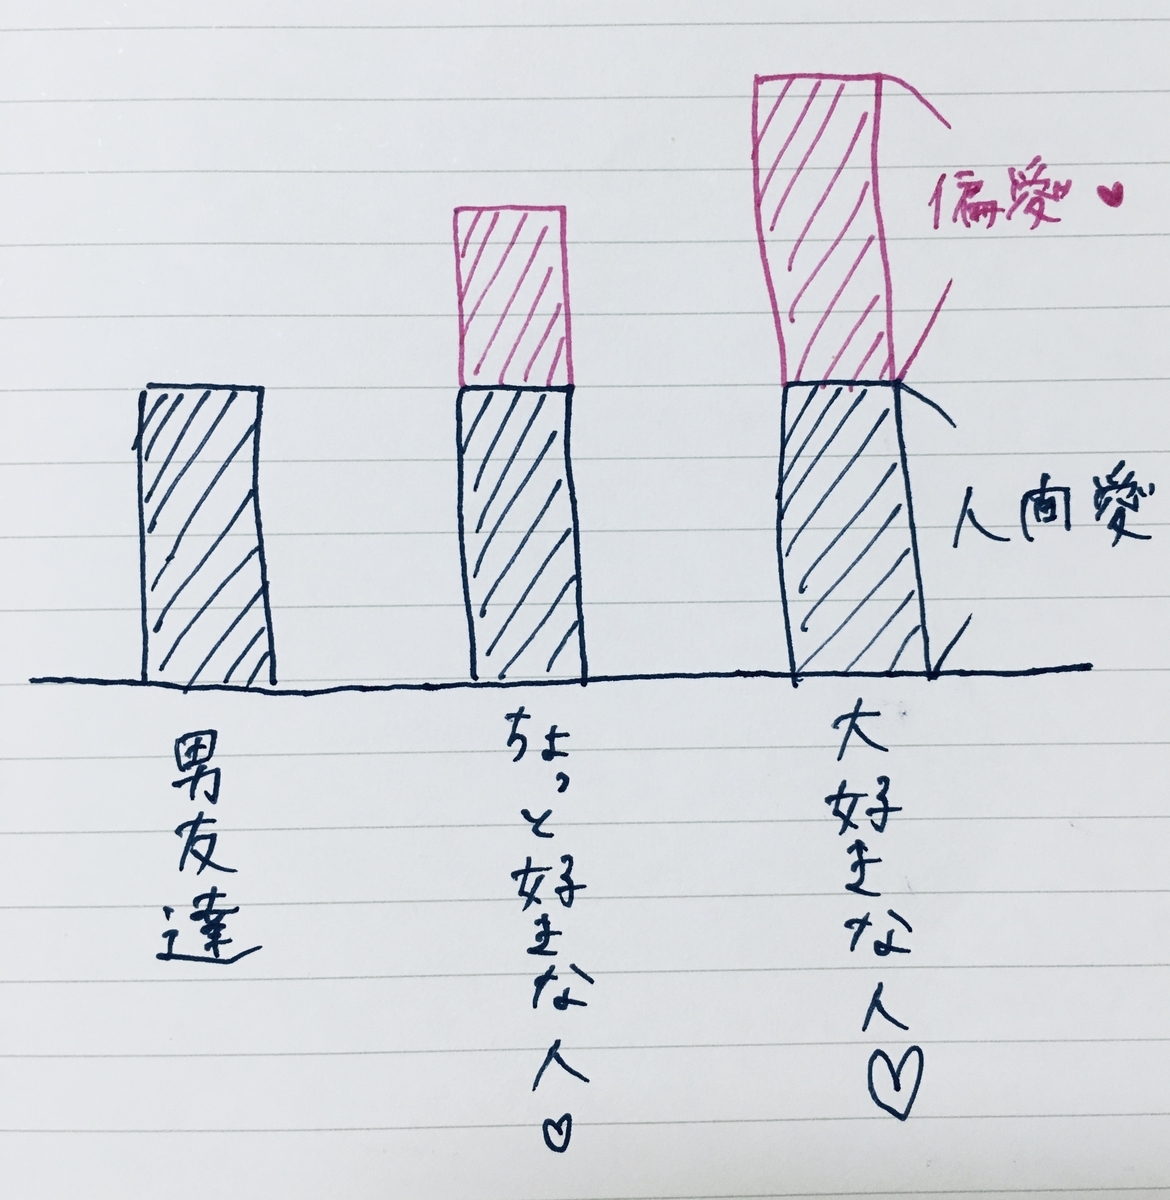 偏愛♥
人間愛
男友達
ちょっと好きな人♡
大好きな人♡